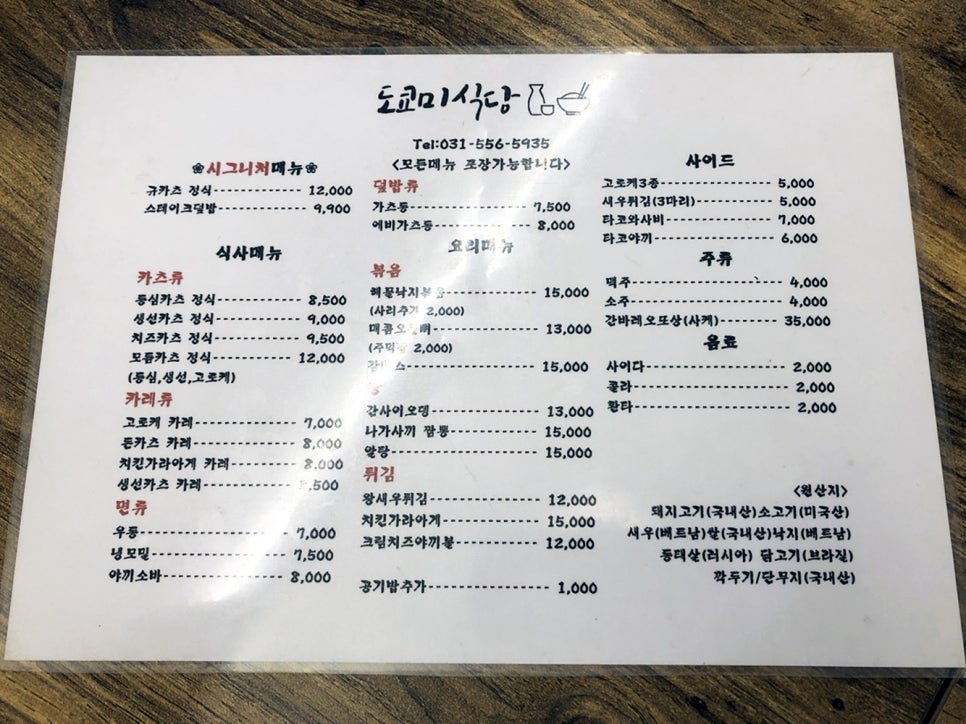 도쿄미식당
Tel:031-556-5935
<모든메뉴 포장가능합니다>
❀시그니처메뉴❀
규카츠 정식 12,000
스테이크덮밥 9,900
식사메뉴
카츠류
등심카츠 정식 8,500
생선카츠 정식 9,000
치즈카츠 정식 9,500
모듬카츠 정식 12,000
(등심,생선,고로케)
카레류
고로케 카레 7,000
돈카츠 카레 8,000
치킨가라아게 카레 8,000
생선카츠 카레
면류
우동 7,000
냉모밀 7,500
야끼소바 8,000
덮밥류
가츠동 7,500
에비가츠동 8,000
요리메뉴
볶음
해물낙지볶음 15,000
(사리추가 2,000)
매콤오돌뼈 13,000
2,000)
15,000
간사이오뎅 13,000
나가사끼 짬뽕 15,000
알탕 15,000
튀김
왕새우튀김 12,000
치킨가라아게 15,000
크림치즈야끼볼 12,000
공기밥추가 1,000
사이드
고로케3종 5,000
새우튀김(3마리) 5,000
타코와사비 7,000
타코야끼 6,000
주류
맥주 4,000
소주 4,000
간바레오또상(사케) 35,000
음료
사이다 2,000
콜라 2,000
환타 2,000
<원산지>
돼지고기(국내산)소고기(미국산)
새우(베트남)쌀(국내산)낙지(베트남)
동태살(러시아) 닭고기(브라질)
깍두기/단무지(국내산)